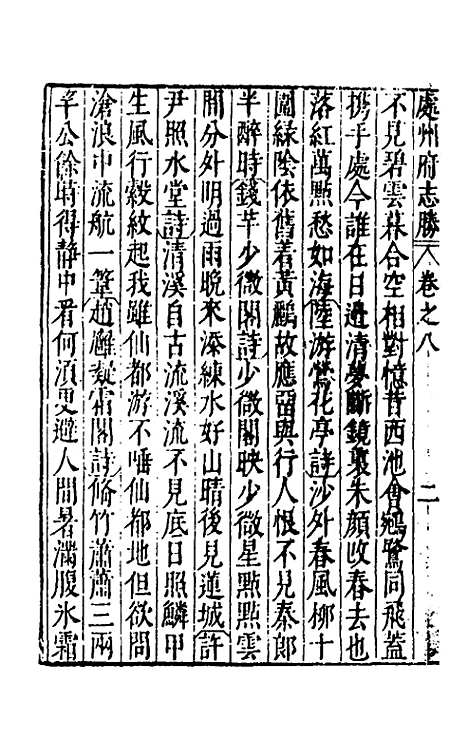 處州府志勝 卷之八 二
不見碧雲暮合空相對憶昔西池會鵷鷺同飛蓋
携手處今誰在日邊清夢斷鏡裏朱顔收春去也
落紅萬點愁如海陸游鶯花亭詩沙外春風柳十
圍綠陰依舊着黃鸝故應留與行人恨不見秦郎
半醉時錢竽少微閣詩少微閣映少微星點點雲
開分外明過雨晚來添練水好山晴後見蓮城許
尹照水堂詩清溪自古流溪流不見底日照鱗甲
生風行縠紋起我雖仙都游不唾仙都地但欲問
滄浪中流航一葦趙邂凝霜閣詩脩竹蕭蕭三兩
竿公餘時得靜中看何須更避人間暑滿腹氷霜